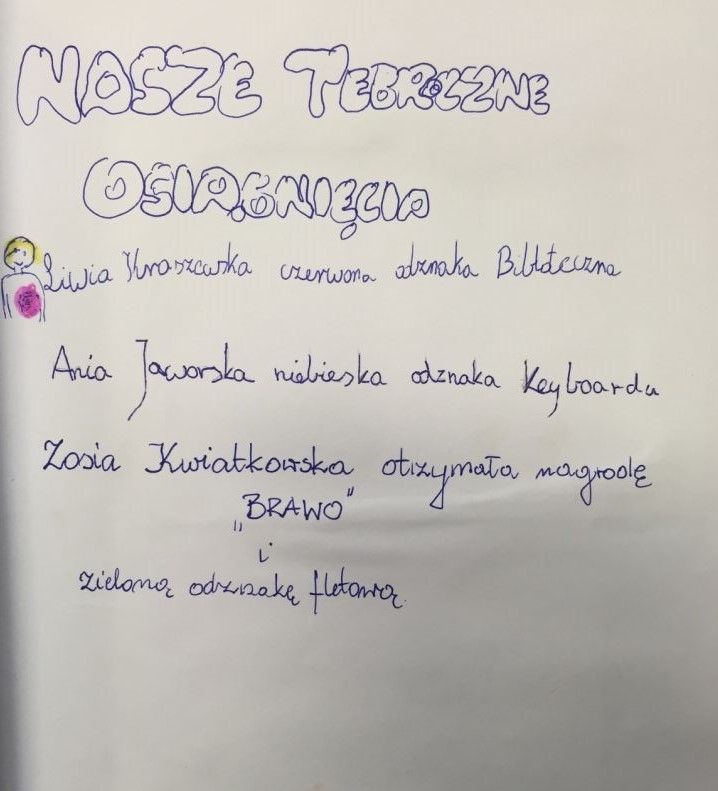 NASZE TEGROCZNE
OSIĄGNIĘCIA
Liwia Kraszewska czerwona odznaka Biblioteczna
Ania Jaworska niebieska odznaka Keyboardu
Zosia Kwiatkowska otrzymała nagrodę
„BRAWO”
i
zieloną odznakę fletową